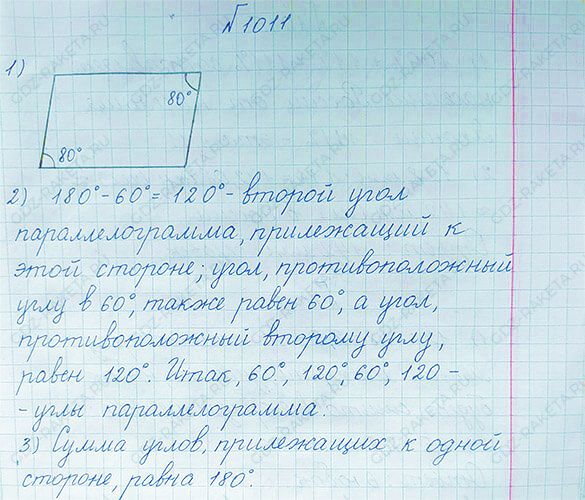 №1011
1)
80°
80°
2) 180° - 60° = 120° - второй угол
параллелограмма, прилежащий к
этой стороне, угол, противоположный
углу в 60°, также равен 60°, а угол,
противоположный второму углу,
равен 120°. Итак, 60°, 120°, 60°, 120 -
- углы параллелограмма.
3) Сумма углов, прилежащих к одной
стороне, равна 180°.
GDZ-RAKETA.RU